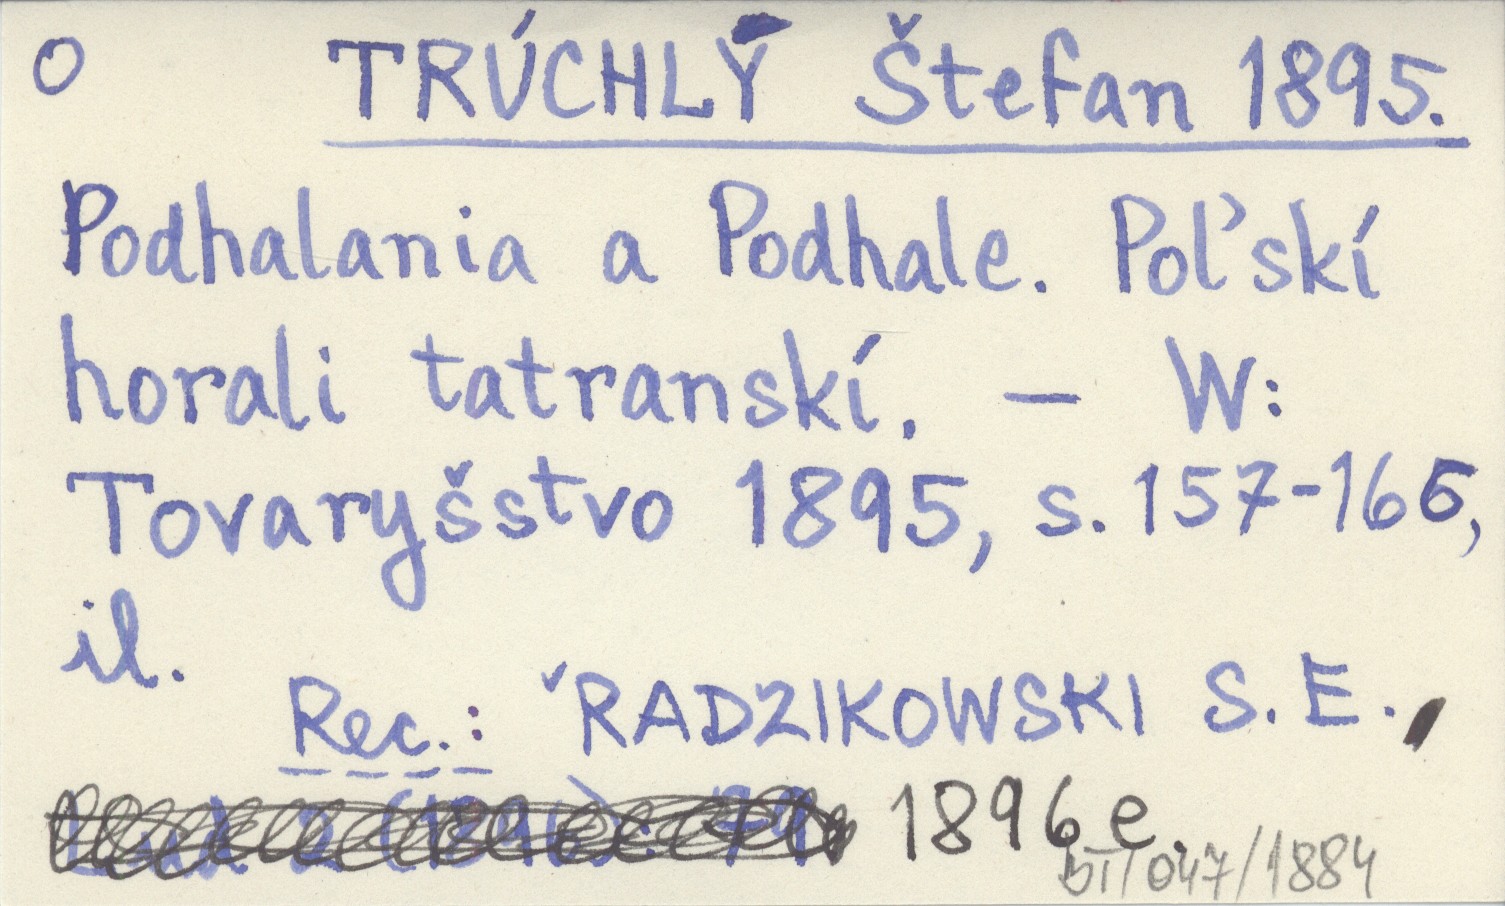 O TRÚCHLÝ Štefan 1895.
Podhalania a Podhale. Poľskí
horali tatranskí. – W:
Tovaryšstvo 1895, s. 157-165,
il.
Rec.: RADZIKOWSKI S. E.,
1896e.
BI/047/1884